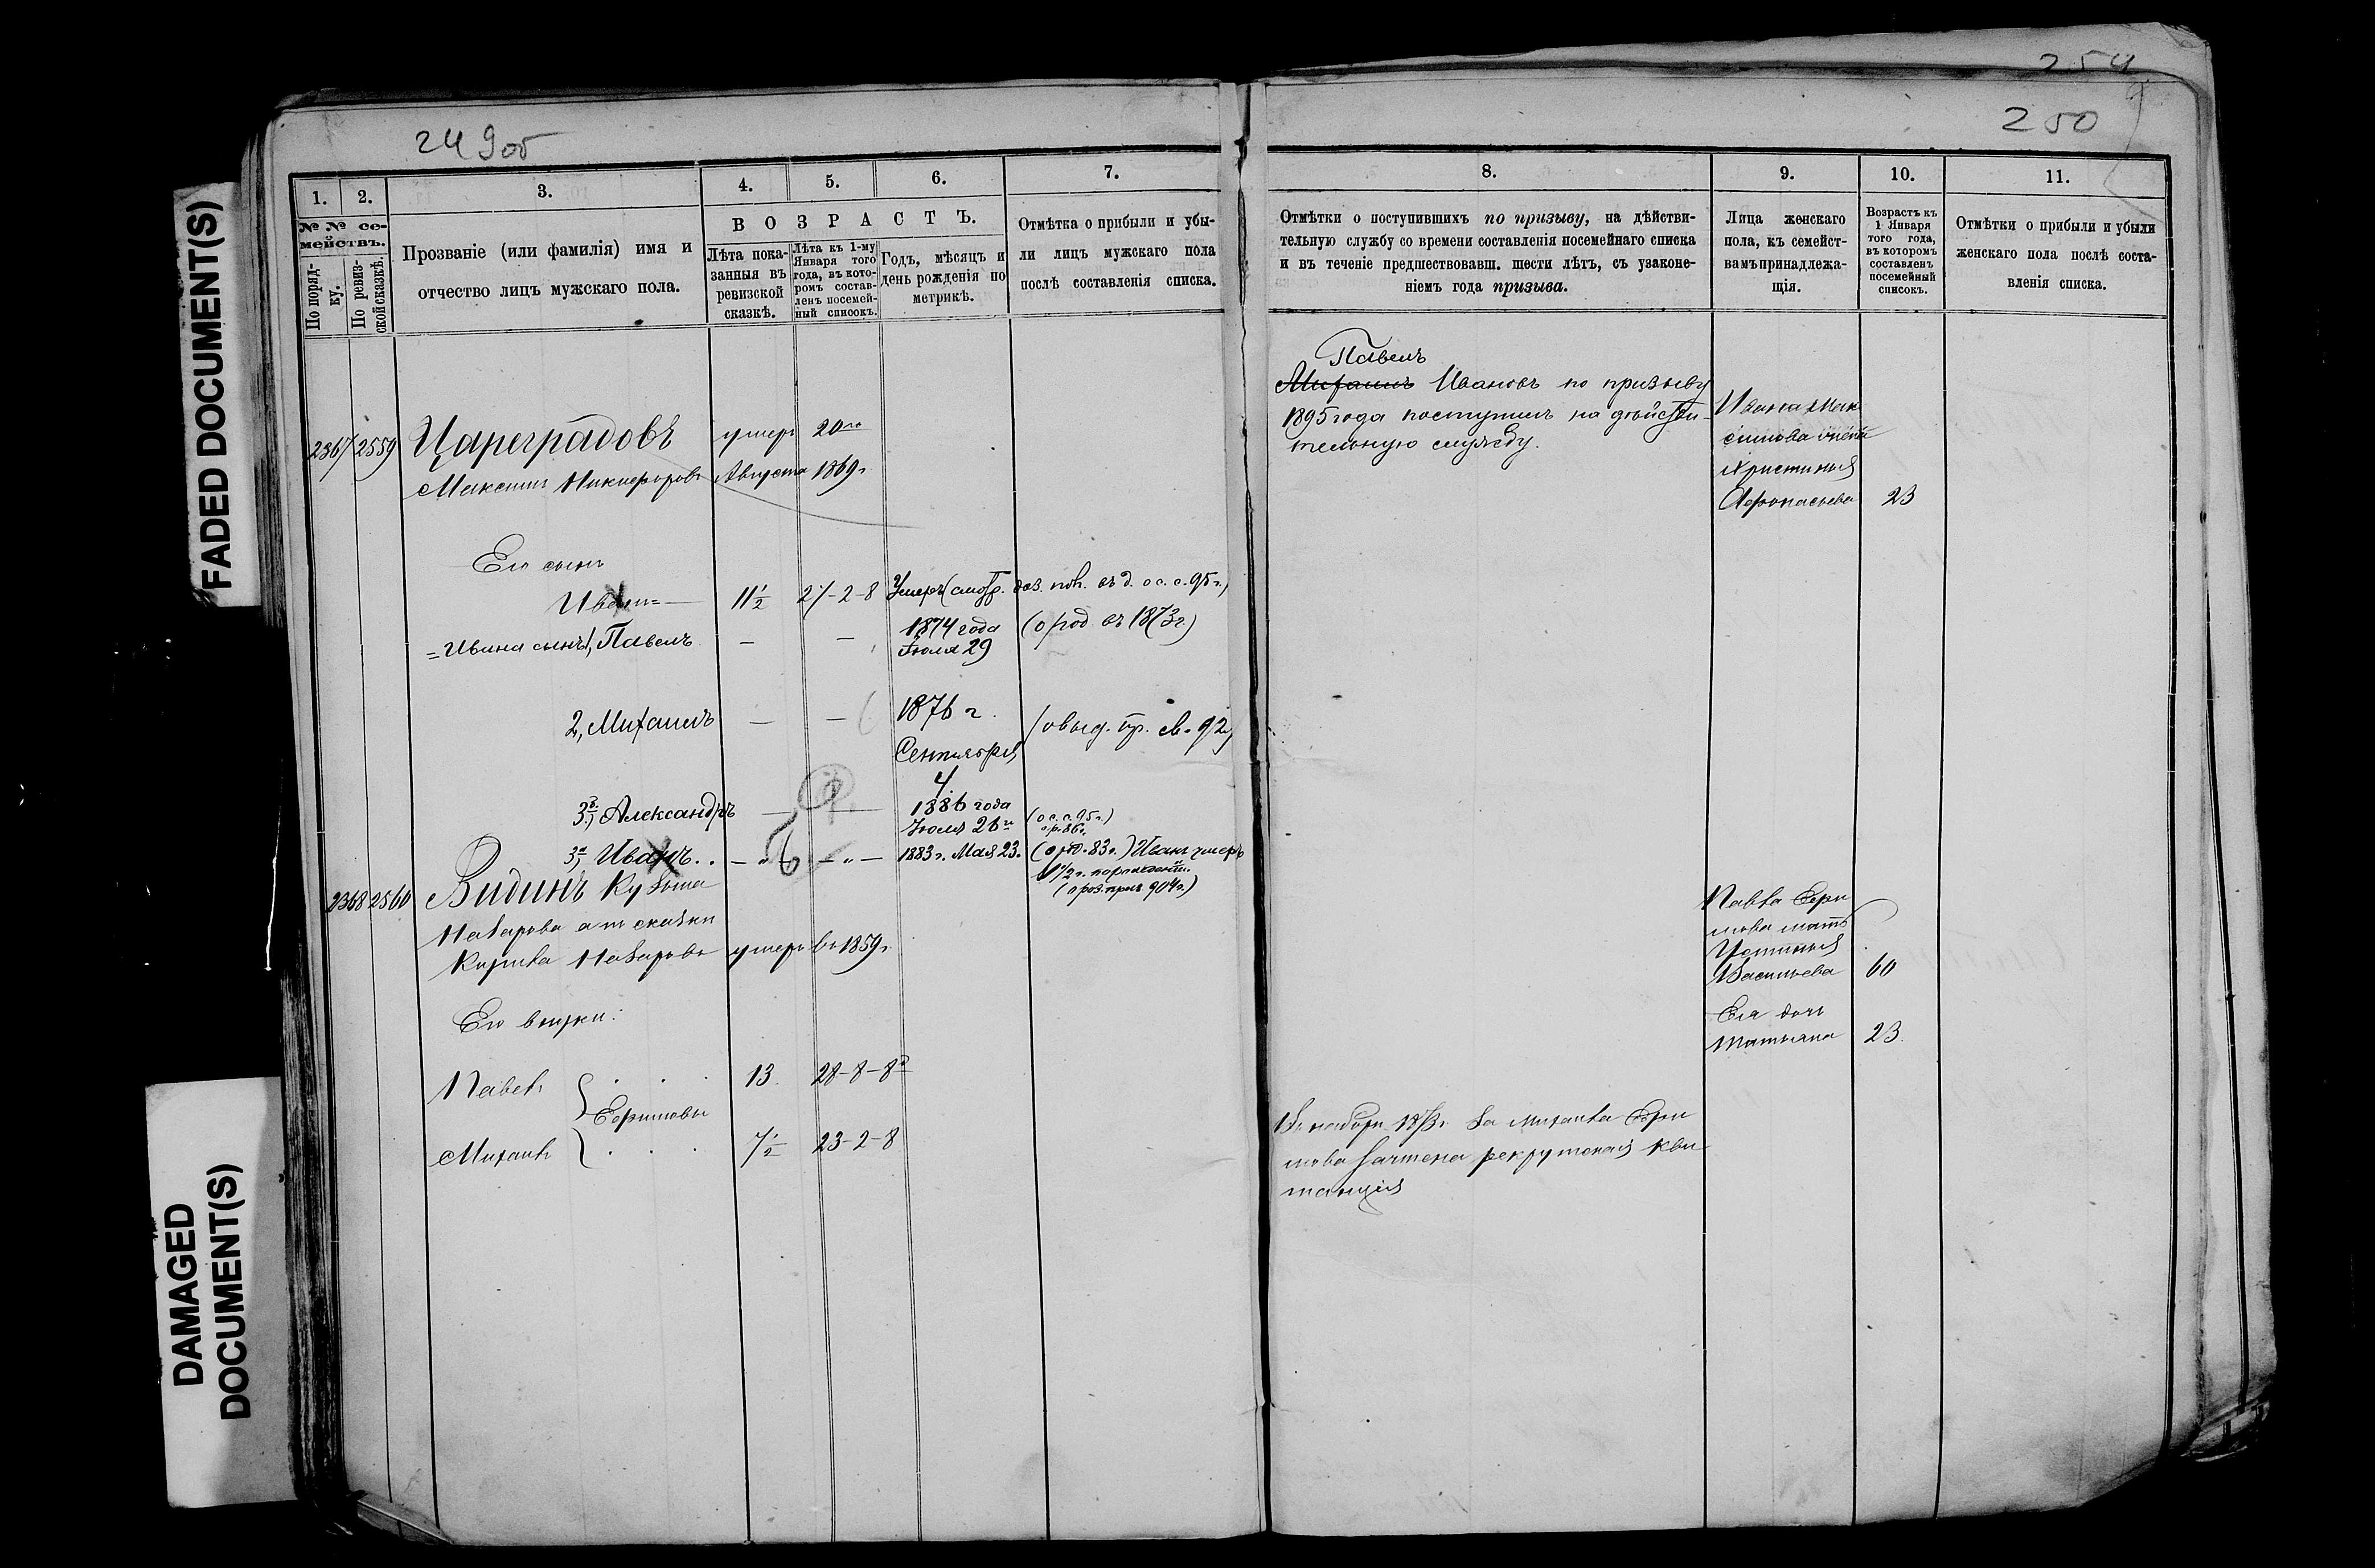 FADED DOCUMENT(S)
DAMAGED
DOCUMENT(S)
249об
1.
2.
3.
4.
5.
6.
7.
№ № се-
мействъ.
По поряд-
ку.
По ревиз-
ской сказкѣ.
Прозваніе (или фамилія) имя и
отчество лицъ мужскаго пола.
ВОЗРАСТЪ.
Лѣта пока-
занныя въ
ревизской
сказкѣ.
Лѣта къ 1-му
Января того
года, въ кото-
ромъ состав-
ленъ посемей-
ный списокъ.
Годъ, мѣсяцъ и
день рожденія по
метрикѣ.
Отмѣтка о прибыли и убы-
ли лицъ мужскаго пола
послѣ составленія списка.
2367 2559 Цареградовъ умеръ 20го
Максимъ Никифоровъ Августа 1869г.
Его сынъ
Иванъ 11½ 27-2-8 Умеръ (смотр. по с.с. 95г.)
Ивана сынъ 1, Павелъ — — 1874 года (о род. въ 1873г.)
Іюля 29
2, Михаилъ — — 1876 г.
Сентября
4.
3, Александръ — — 1886 года (о с.с. 95г.)
Іюля 26го
3, Иванъ.. — " — — " — 1883г. Мая 23. (о род. 83г.) Иванъ умеръ
904г.)
2368 2560 Видинъ Кузьма
Назарова а по сказки
Кирила Назаровъ умеръ въ 1859г.
Его внуки:
Павелъ 13 28-8-8
Ефимовы
Михаилъ 7½ 23-2-8
254
250
8.
9.
10.
11.
Отмѣтки о поступившихъ по призыву, на дѣйстви-
тельную службу со времени составленія посемейнаго списка
и въ теченіе предшествовавш. шести лѣтъ, съ узаконе-
ніемъ года призыва.
Лица женскаго
пола, къ семейст-
вамъ принадлежа-
щія.
Возрастъ къ
1 Января
того года,
въ которомъ
составленъ
посемейный
списокъ.
Отмѣтки о прибыли и убыли
женскаго пола послѣ соста-
вленія списка.
Павелъ
Михаилъ Ивановъ по призыву
1895 года поступилъ на дѣйстви-
тельную службу.
Ивана Мак
симова жена
Христинья
Афонасьева 23
Павла Ефи
мова мать
Устинья
Васильева 60
Ея дочь
Татьяна 23
Въ наборъ 187 г. за Михаила Ефи
мова зачтена рекрутская кви
танція